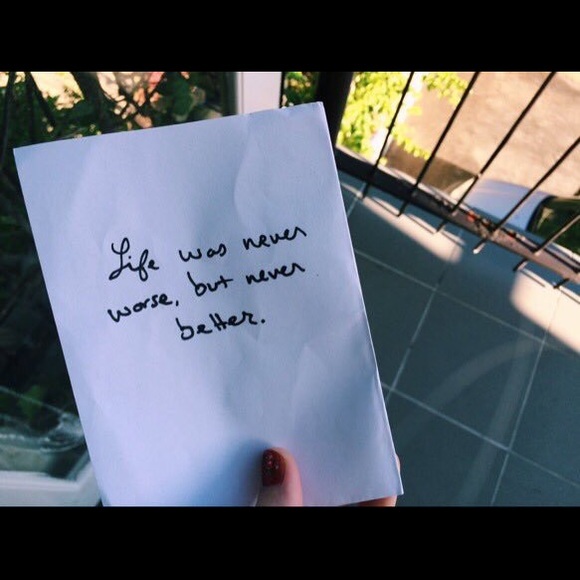 Life was never
worse, but never
better.